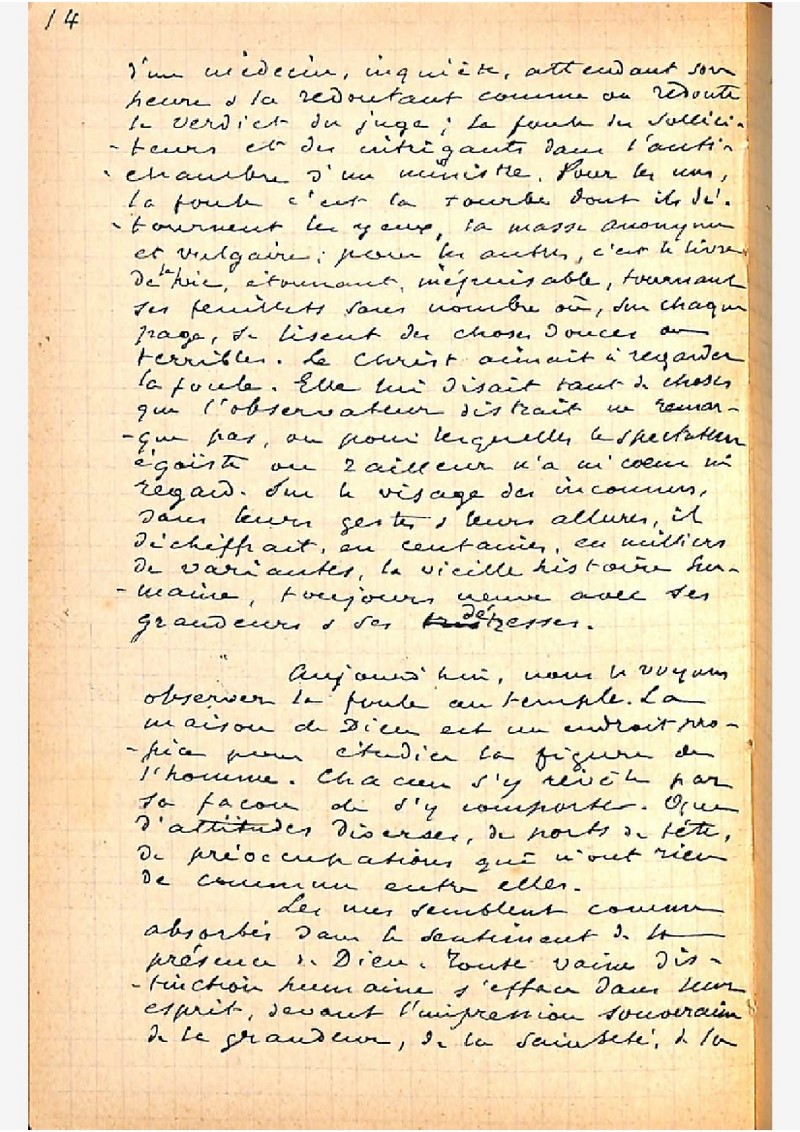 14
d'un médecin, inquiète, attendant son
heure & la redoutant comme on redoute
le verdict du juge ; la foule des sollici-
-teurs et des intrigants dans l'anti-
-chambre d'un ministre. Pour les uns,
la foule c'est la tourbe dont ils dé-
-tournent les yeux, la masse anonyme
et vulgaire ; pour les autres, c'est le livre
de la vie, étonnant, inépuisable, tournant
ses feuillets sans nombre où, sur chaque
page, se lisent des choses douces ou
terribles. Le Christ aimait à regarder
la foule. Elle lui disait tant de choses
que l'observateur distrait ne remar-
-que pas, ou pour lesquelles le spectateur
égoïste ou railleur n'a ni cœur ni
regard. Sur le visage des inconnus,
dans leurs gestes & leurs allures, il
déchiffrait, en centaines, en milliers
de variantes, la vieille histoire hu-
-maine, toujours neuve avec ses
grandeurs & ses détresses.
Aujourd'hui, nous le voyons
observer la foule au temple. La
maison de Dieu est un endroit pro-
-pice pour étudier la figure de
l'homme. Chacun s'y révèle par
sa façon de s'y comporter. Que
d'attitudes diverses, de ports de tête,
de préoccupations qui n'ont rien
de commun entre elles.
Les uns semblent comme
absorbés dans le sentiment de la
présence de Dieu. Toute vaine dis-
-tinction humaine s'efface dans leur
esprit, devant l'impression souveraine
de la grandeur, de la sainteté, de la